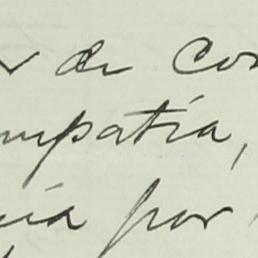 r de con
mpatía,
ia por